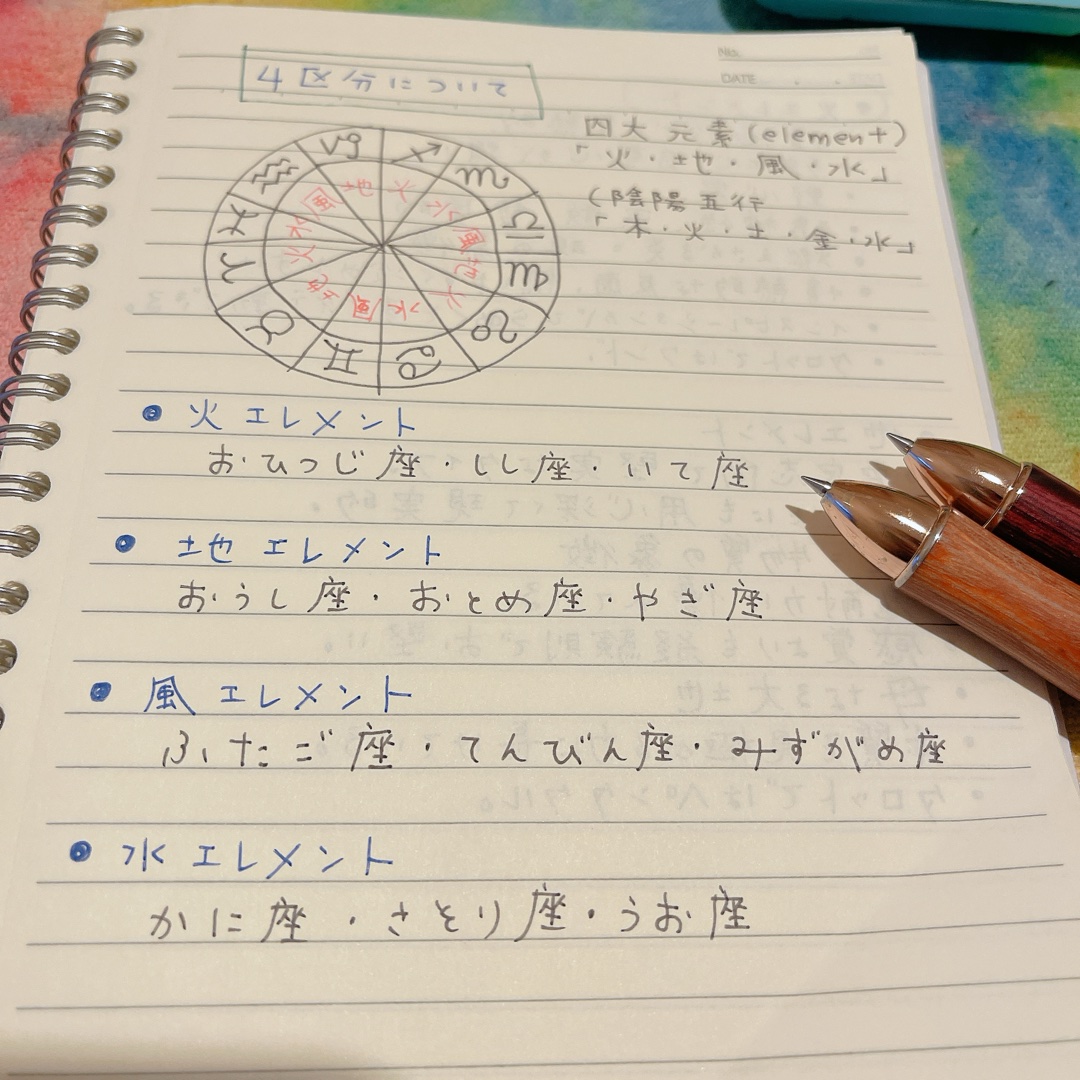 4区分について
No.
DATE
四大元素(element)
「火・地・風・水」
(陰陽五行
「木・火・土・金・水」
♑ ♐ ♏ ♎ ♍ ♌ ♋ ♊ ♉ ♈ ♓ ♒
地 火 水 風 地 火 水 風 地 火 水 風
● 火エレメント
おひつじ座・しし座・いて座
● 地エレメント
おうし座・おとめ座・やぎ座
● 風エレメント
ふたご座・てんびん座・みずがめ座
● 水エレメント
かに座・さそり座・うお座